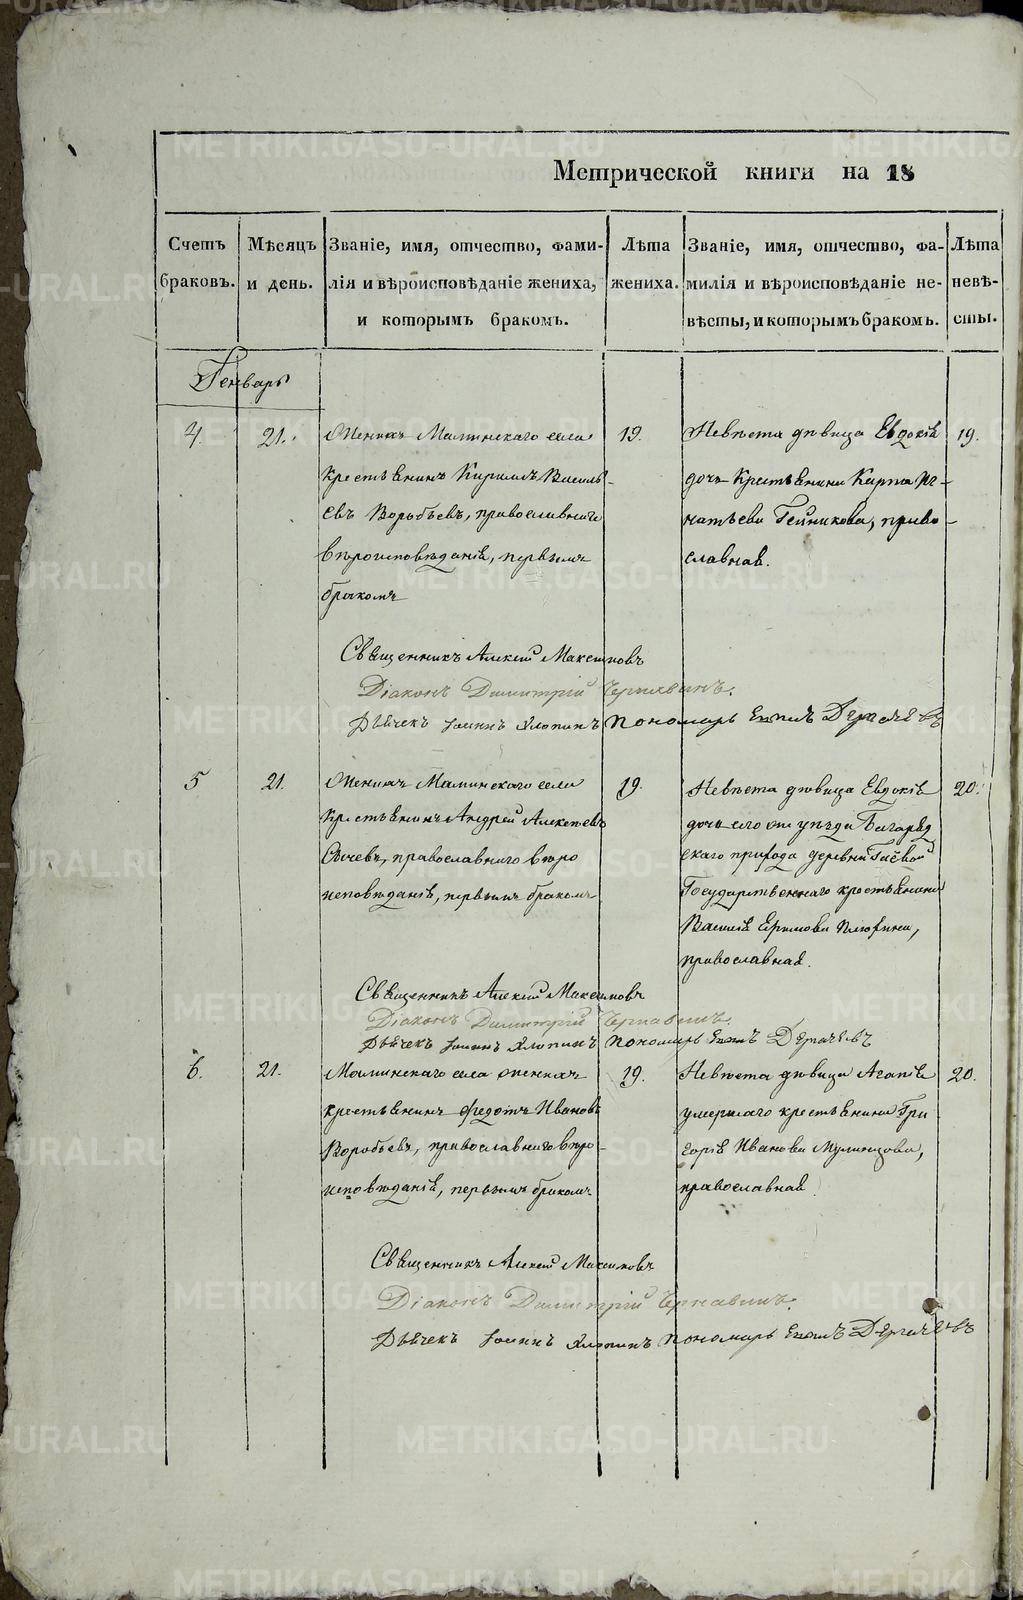 Метрической книги на 18
Счетъ браковъ.
Мѣсяцъ и день.
Званіе, имя, отчество, фами-
лія и вѣроисповѣданіе жениха,
и которымъ бракомъ.
Лѣта жениха.
Званіе, имя, отчество, фа-
милія и вѣроисповѣданіе не-
вѣсты, и которымъ бракомъ.
Лѣта невѣ-
сты.
Генварь
4. 21.
Женихъ Маминскаго села
крестьянинъ Кириллъ Василь-
евъ Воробьевъ, православнаго
вѣроисповѣданія, первымъ
бракомъ
19.
Невѣста дѣвица Евдокія
дочь Крестьянина Карпа Иг-
натьева Гейникова, право-
славная.
19.
Священникъ Алексій Максимовъ
Діаконъ Димитрій Чернавинъ.
Дьячекъ Іоаннъ Хлопинъ Пономарь Дерячевъ
5 21.
Женихъ Маминскаго села
крестьянинъ Андрей Алексѣевъ
Сычевъ, православнаго вѣро
исповѣданія, первымъ бракомъ
19.
Невѣста дѣвица Евдокія
дочь его же уѣзда Багаряд
скаго прихода деревни
Государственнаго крестьянина
Василія Ефимова
православная.
20.
Священникъ Алексій Максимовъ
Діаконъ Димитрій Чернавинъ.
Дьячекъ Іоаннъ Хлопинъ Пономарь Дерячевъ
6. 21.
Маминскаго села женихъ
крестьянинъ Федотъ Ивановъ
Воробьевъ, православнаго вѣро-
исповѣданія, первымъ бракомъ
19.
Невѣста дѣвица Агапія
умершаго крестьянина Гри
горія Иванова
православная
20.
Священникъ Алексій Максимовъ
Діаконъ Димитрій Чернавинъ.
Дьячекъ Іоаннъ Хлопинъ Пономарь Дерячевъ
METRIKI.GASO-URAL.RU